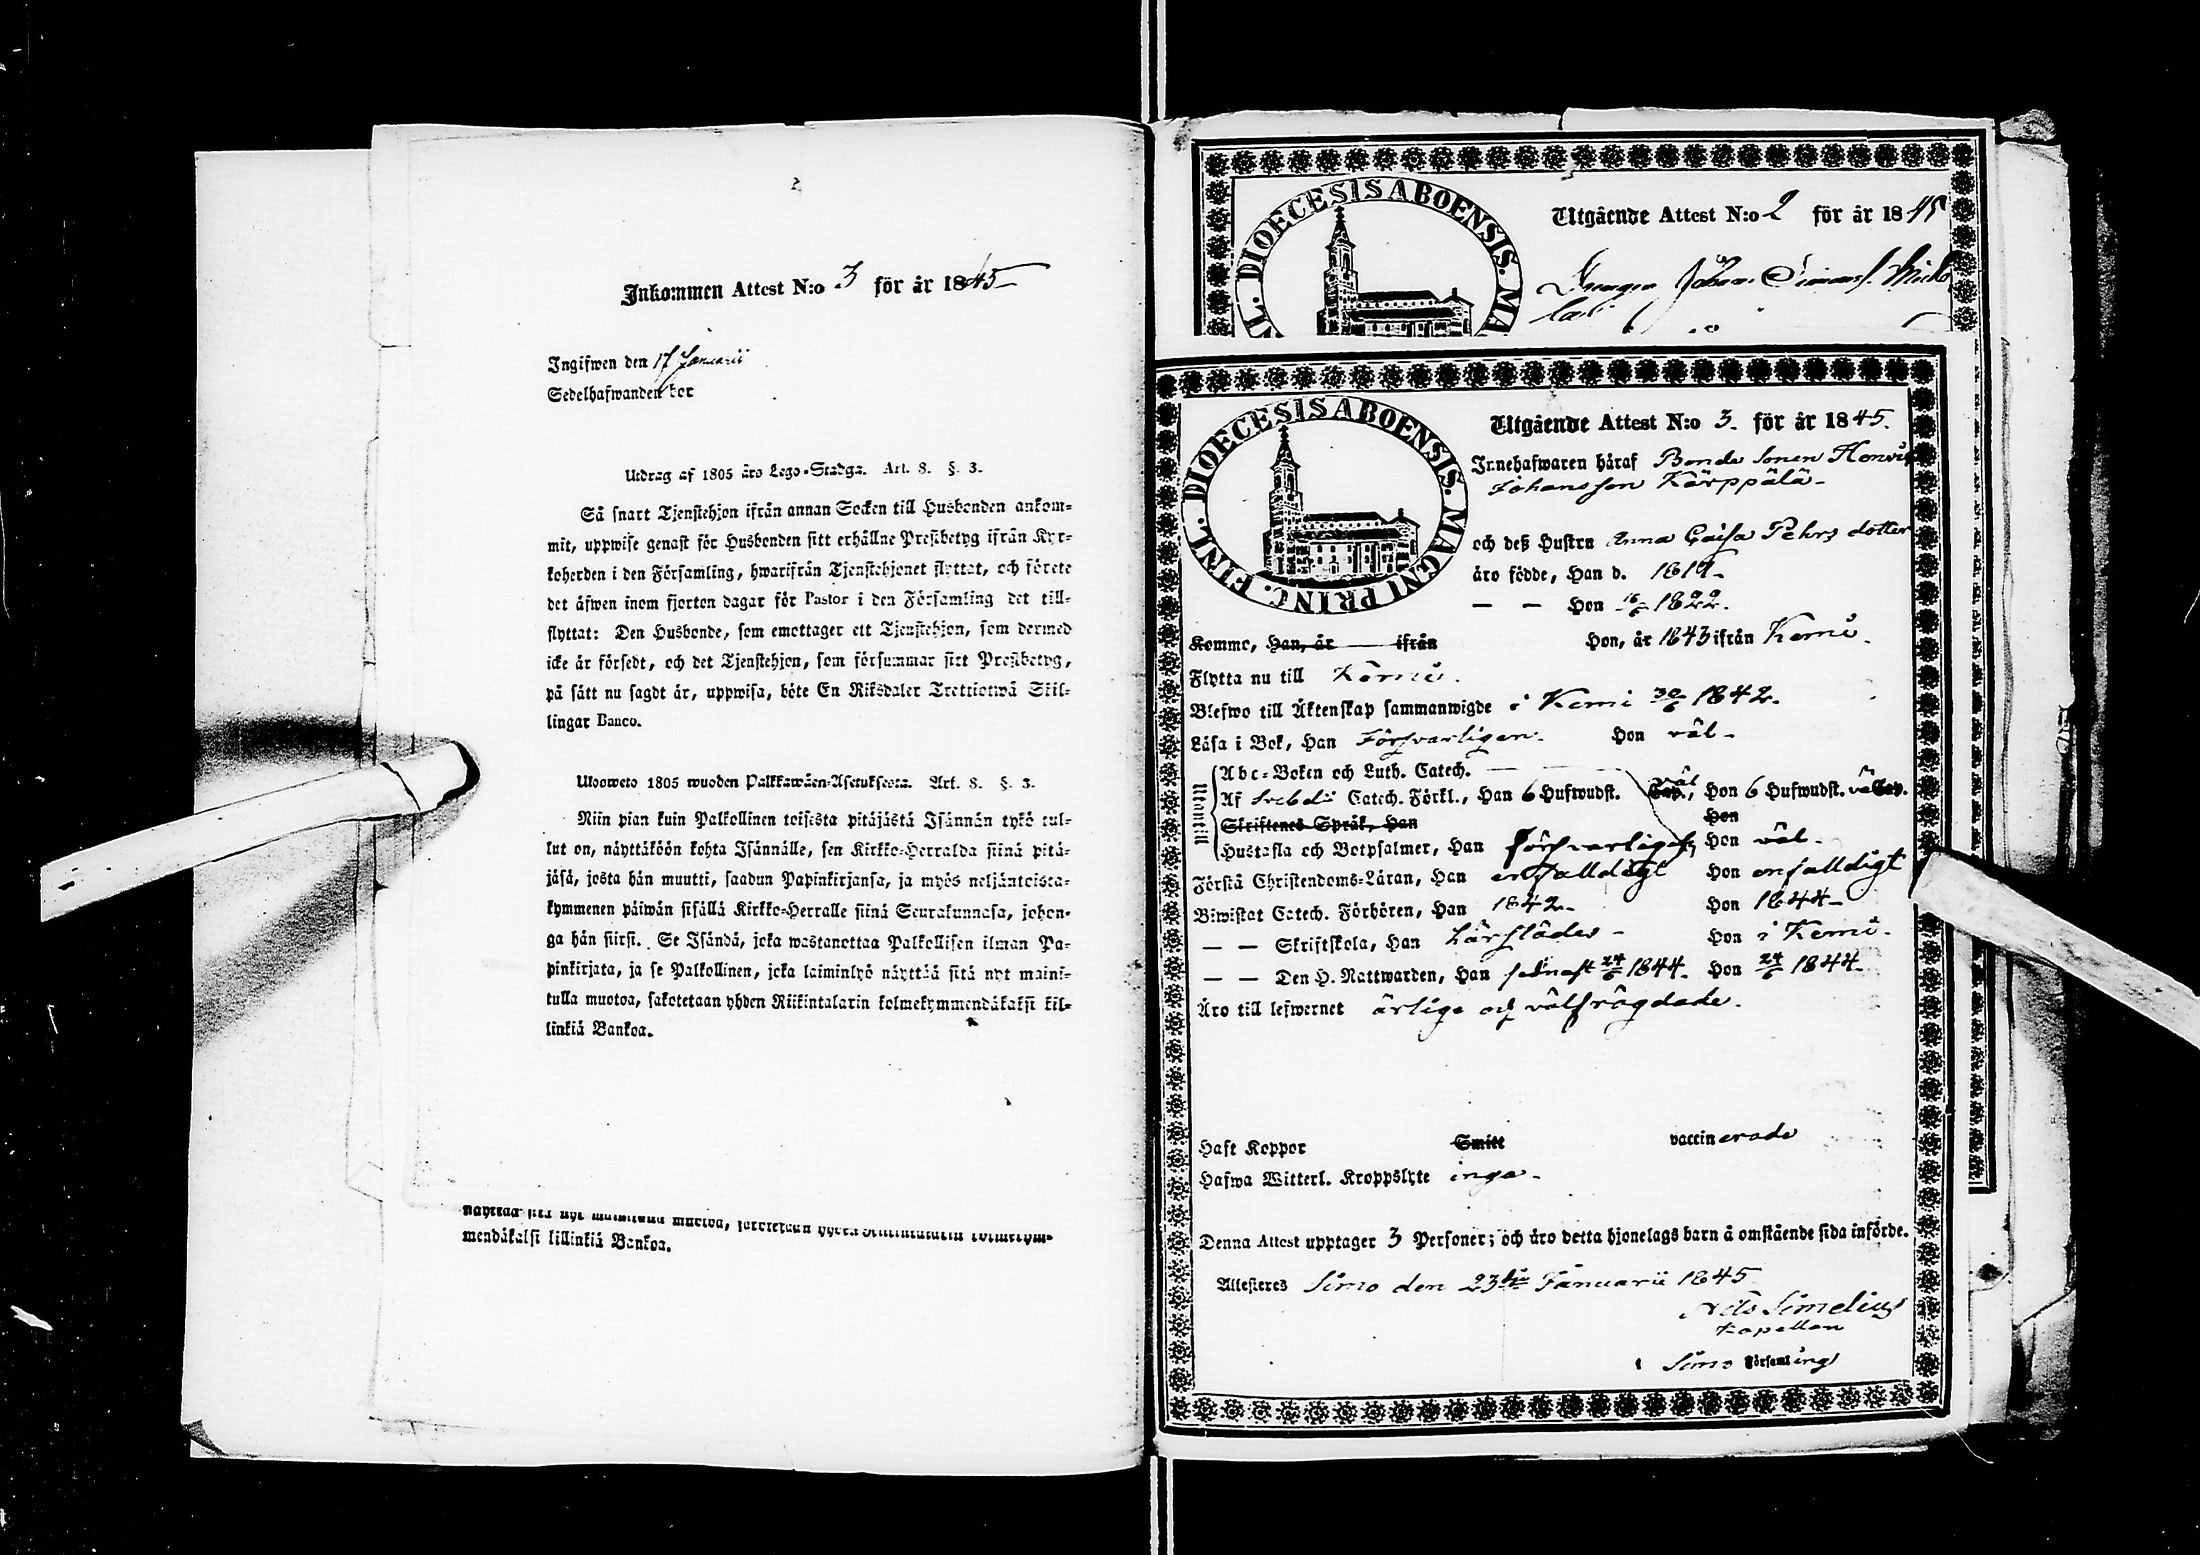 Inkommen Attest N:o 3 för år 1845
Ingifwen den 17 Januarii
Sedelhafwanden bor
Utdrag af 1805 års Lego-Stadga. Art. 8. §. 3.
Så snart Tjenstehjon ifrån annan Socken till Husbonden ankom-
mit, uppwise genast för Husbonden sitt erhållne Prestbetyg ifrån Kyr-
koherden i den Församling, hwarifrån Tjenstehjonet flyttat, och förete
det äfwen inom fjorton dagar för Pastor i den Församling det till-
flyttat: Den Husbonde, som emottager ett Tjenstehjon, som dermed
icke är försedt, och det Tjenstehjon, som försummar sitt Prestbetyg,
på sätt nu sagdt är, uppwisa, böte En Riksdaler Trettiotwå Skil-
lingar Banco.
Uloosweto 1805 wuoden Palkkawäen-Asetuksesta. Art. 8. §. 3.
Niin pian kuin Palkollinen toisesta pitäjästä Isännän tykö tul-
lut on, näyttäköön kohta Isännälle, sen Kirkko-Herralda siinä pitä-
jäsä, josta hän muutti, saadun Papinkirjansa, ja myös neljäntoista-
kymmenen päiwän sisällä Kirkko-Herralle siinä Seurakunnasa, johon-
ga hän siirst. Se Isändä, joka wastanottaa Palkollisen ilman Pa-
pinkirjata, ja se Palkollinen, joka laiminlyö näyttää sitä nyt maini-
tulla muotoa, sakotetaan yhden Riikintalarin kolmekymmendäkaksi kil-
linkiä Bankoa.
näyttää sitä nyt mainitulla muotoa, sakotetaan yhden Riikintalarin kolmekym-
mendäkaksi killinkiä Bankoa.
FINL. DIOECESIS ABOENSIS. MA
Utgående Attest N:o 2 för år 1845
Drengen Johan Simonss.
FINL. DIOECESIS ABOENSIS. MAGNI PRINC.
Utgående Attest N:o 3. för år 1845.
Innehafwaren häraf Bonde Sonen Henric
Johansson Kärppälä-
och deß Hustru Anna Caisa Pehrs dotter
äro födde, Han d. 1819-
— — Hon 16/6 1822.
Komme, Han, år — ifrån Hon, år 1843 ifrån Kemi.
Flytta nu till Kemi.
Blefwo till Äktenskap sammanwigde i Kemi 30/6 1842.
Läsa i Bok, Han Försvarligen. Hon väl-
Utantill
Abc-Boken och Luth. Catech. —
Af Svebelii Catech. Förkl., Han 6 Hufwudst. väl Cap., Hon 6 Hufwudst. väl Cap.
Skriftenes Språk, Han Hon
Hustafla och Botpsalmer, Han försvarligen, Hon väl-
Förstå Christendoms-Läran, Han enfalldigt Hon enfalldigt
Biwistat Catech. Förhören, Han 1842- Hon 1844-
— — Skriftskola, Han Lärstädes- Hon i Kemi.
— — Den H. Nattwarden, Han sednast 24/6 1844. Hon 24/6 1844.
Äro till lefwernet ärlige och välfrägdade.
Haft Koppor Smitt vaccinerade
Hafwa Witterl. Kroppslyte inga-
Denna Attest upptager 3 Personer; och äro detta hjonelags barn å omstående sida införde.
Attesteres Simo den 23die Januarii 1845
Nils Simelius
Kapellan
i Simo Församling